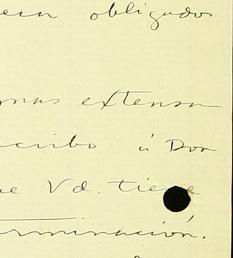 obligados
extensa
cribo á Don
Vd. tiene
rminación.